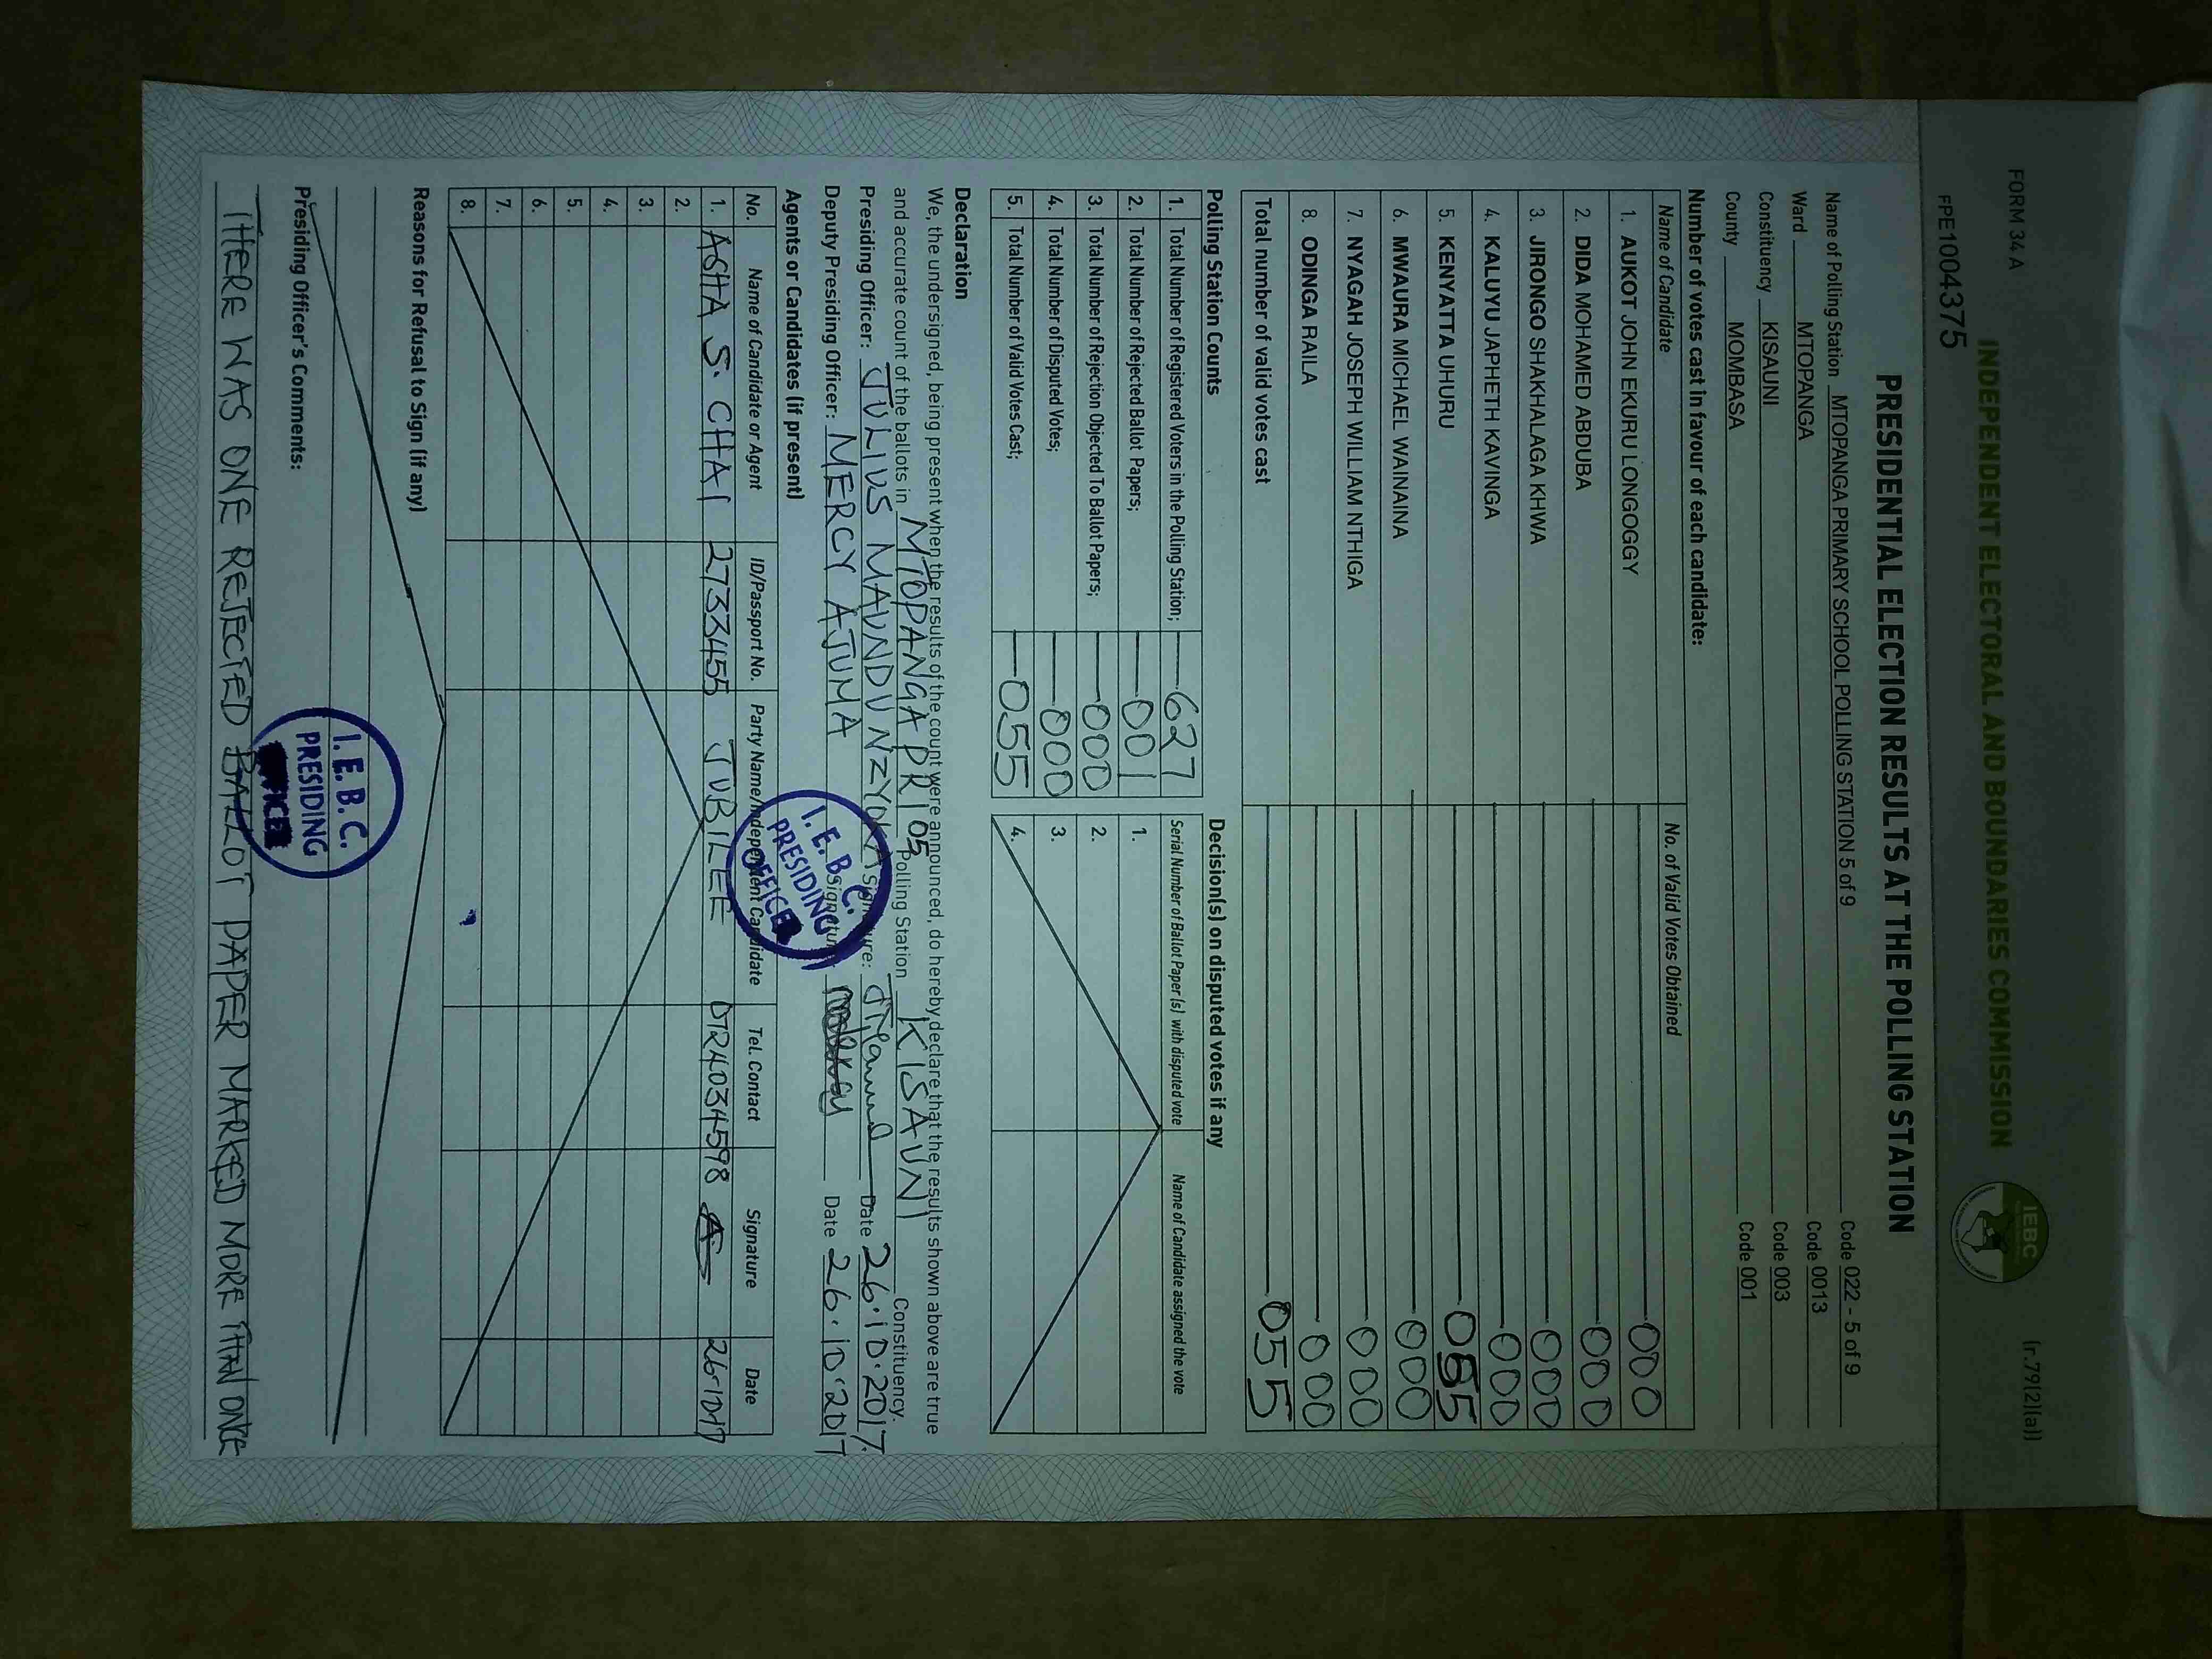 FORM 34 A
(r.79(2)(a))
INDEPENDENT ELECTORAL AND BOUNDARIES COMMISSION
IEBC
FPE1004375
PRESIDENTIAL ELECTION RESULTS AT THE POLLING STATION
Name of Polling Station MTOPANGA PRIMARY SCHOOL POLLING STATION 5 of 9 Code 022 - 5 of 9
Ward MTOPANGA Code 0013
Constituency KISAUNI Code 003
County MOMBASA Code 001
Number of votes cast in favour of each candidate:
Name of Candidate No. of Valid Votes Obtained
1. AUKOT JOHN EKURU LONGOGGY 000
2. DIDA MOHAMED ABDUBA 000
3. JIRONGO SHAKHALAGA KHWA 000
4. KALUYU JAPHETH KAVINGA 000
5. KENYATTA UHURU 055
6. MWAURA MICHAEL WAINAINA 000
7. NYAGAH JOSEPH WILLIAM NTHIGA 000
8. ODINGA RAILA 000
Total number of valid votes cast 055
Polling Station Counts
1. Total Number of Registered Voters in the Polling Station; 627
2. Total Number of Rejected Ballot Papers; 001
3. Total Number of Rejection Objected To Ballot Papers; 000
4. Total Number of Disputed Votes; 000
5. Total Number of Valid Votes Cast; 055
Decision(s) on disputed votes if any
Serial Number of Ballot Paper (s) with disputed vote Name of Candidate assigned the vote
1.
2.
3.
4.
Declaration
We, the undersigned, being present when the results of the count were announced, do hereby declare that the results shown above are true
and accurate count of the ballots in MTOPANGA PRI 05 Polling Station KISAUNI Constituency.
Presiding Officer: JULIUS MAUNDU NZYOKA Signature: Date 26.10.2017
Deputy Presiding Officer: MERCY AJUMA Signature: Date 26.10.2017
I. E. B. C.
PRESIDING
OFFICER
Agents or Candidates (if present)
No. Name of Candidate or Agent ID/Passport No. Party Name/Independent Candidate Tel. Contact Signature Date
1. ASHA S. CHAI 27333455 JUBILEE 0724034598 26-10-17
2.
3.
4.
5.
6.
7.
8.
Reasons for Refusal to Sign (if any)
Presiding Officer's Comments:
I. E. B. C.
PRESIDING
THERE WAS ONE REJECTED BALLOT PAPER MARKED MORE THAN ONCE